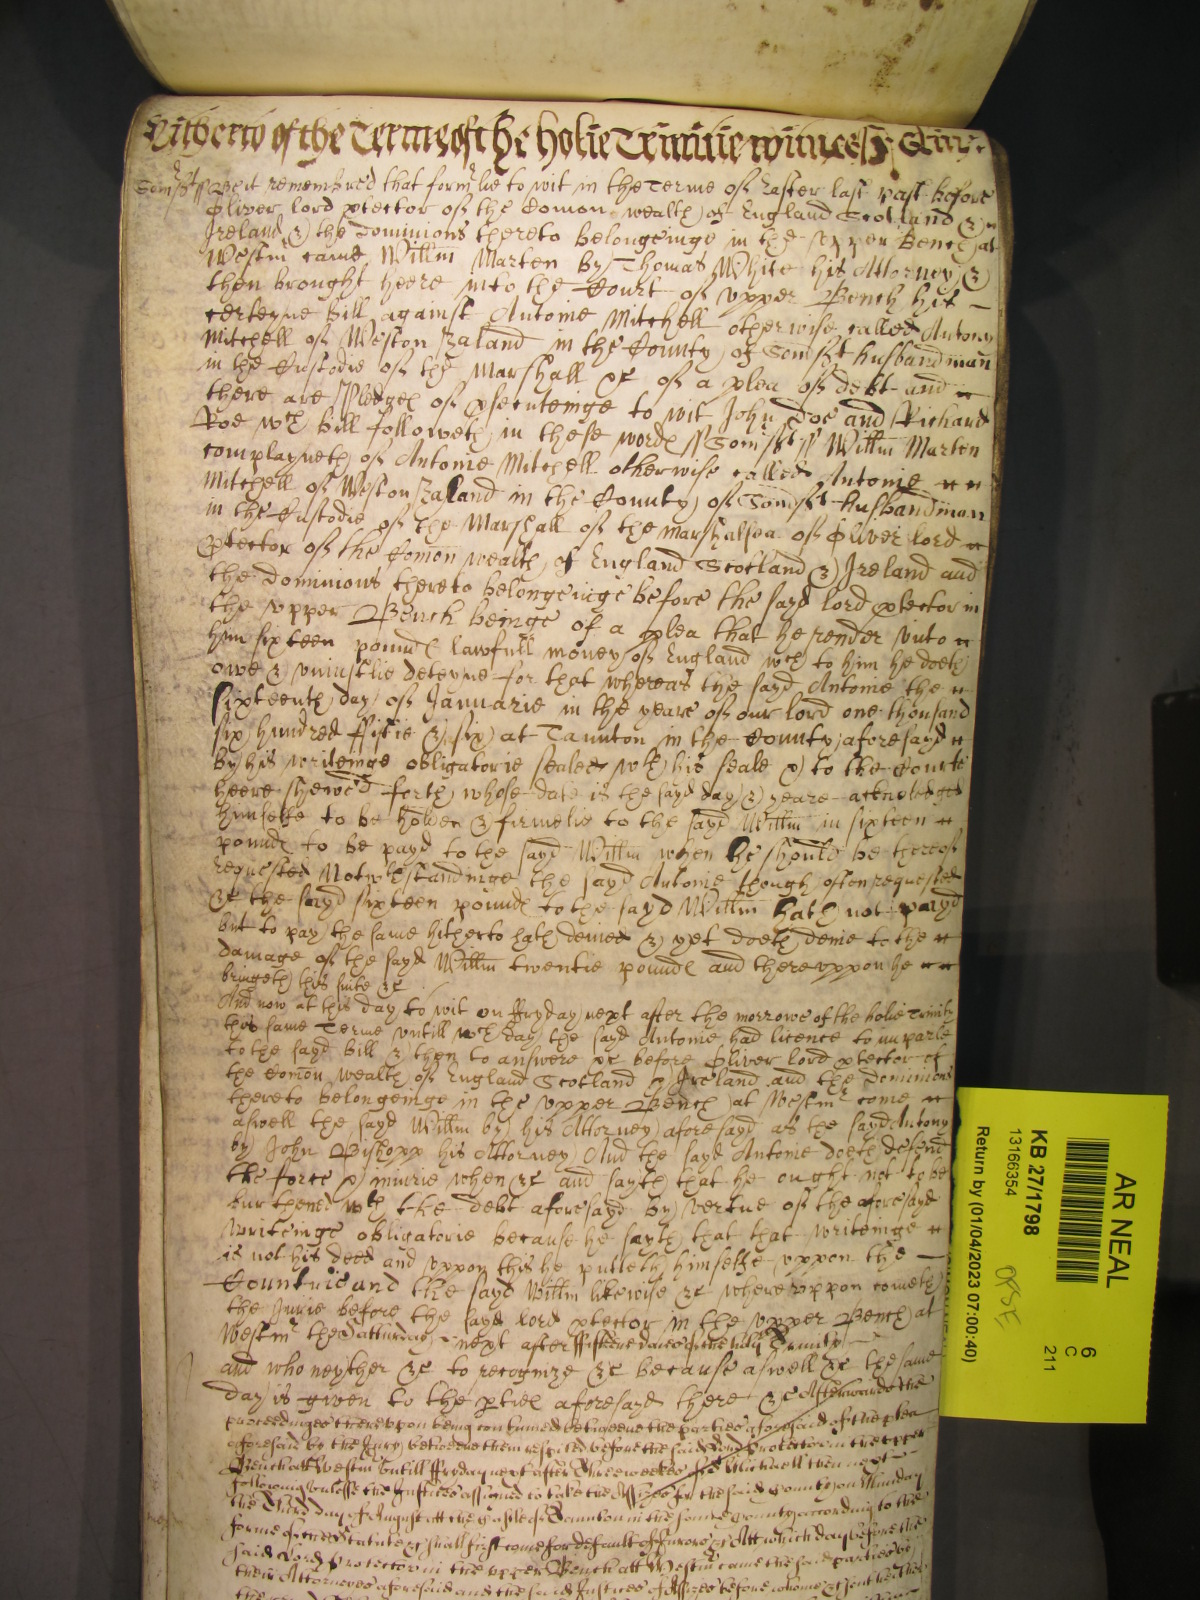 Hitherto of the Terme of the holie Trinitie witness
Somst ss Be it remembred that formrlie to wit in the Terme of Easter last past before
Oliver lord ptector of the Comon wealth of England Scotland &
Ireland & the dominions thereto belongeinge in the upper Bench at
Westm came Willm Marten by Thomas White his Attorney &
then brought heere into the Court of upper Bench his
certeyne bill against Antonie Mitchell otherwise called Antony
Mitchell of Weston Zaland in the County of Somst husbandman
in the Custodie of the Marshall &c of a plea of debt and
there are Pledges of psecuteinge to wit John Doe and Richard
Roe wch bill followeth in these words ss Somst ss Willm Marten
complayneth of Antonie Mitchell otherwise called Antonie
Mitchell of Weston Zaland in the County of Somst husbandman
in the Custodie of the Marshall of the marshalsea of Oliver lord
ptector of the Comon wealth of England Scotland & Ireland and
the dominions thereto belongeinge before the sayd lord ptector in
the upper Bench beinge of a plea that he render unto
him sixteen pounds lawfull money of England wch to him he doeth
owe & uniustlie deteyne for that whereas the sayd Antonie the
sixteenth day of Januarie in the yeare of our lord one thousand
six hundred fiftie & six at Taunton in the County aforesayd
by his writeinge obligatorie sealed wth his seale & to the Courte
heere shewed forth whose date is the sayd day & yeare acknoledged
himselfe to be holden & firmelie to the sayd Willm in sixteen
pounds to be payd to the sayd Willm when he should be thereof
requested Notwthstandinge the sayd Antonie though often requested
&c the sayd sixteen pounds to the sayd Willm hath not payd
but to pay the same hitherto hath denied & yet doeth denie to the
damage of the sayd Willm twentie pounds and thereuppon he
bringeth this suite &c
And now at this day to wit on ffryday next after the morrowe of the holie Trinity
this same Terme untill wch day the sayd Antonie had licence to imparle
to the sayd bill & then to answere &c before Oliver lord ptector of
the Comon wealth of England Scotland & Ireland and the dominions
thereto belongeinge in the upper Bench at Westmr come
aswell the sayd Willm by his Attorney aforesayd as the sayd Antony
by John Bishopp his Attorney And the sayd Antonie doeth defend
the force & iniurie when &c and sayth that he ought not to be
burthened wth the debt aforesayd by vertue of the aforesayd
writeinge obligatorie because he sayth that that writeinge
is not his deed and uppon this he putteth himselfe uppon the
Countrie and the sayd Willm likewise &c whereuppon cometh
the Jurie before the sayd lord ptector in the upper Bench at
Westmr the Satturday next after fifteene daies of the holy Trinity
and who neyther &c to recognize &c because aswell &c the same
day is given to the pties aforesayd there &c Afterwards the
proceedinges thereupon being continued betweene the parties aforesaid of the plea
aforesaid by the Jury betweene them respited before the said Lord Protector in the upper
Bench att Westmr untill ffryday next after three weekes of St Michaell then next
following unlesse the Justices assigned to take the Assizes for the said County on Munday
the third day of August att the Castle of Taunton in the same County according to the
forme of the Statute &c shall first come for default of Jurors &c Att which day before the
said Lord Protector in the upper Bench att Westmr came the said parties by
their Attorneyes aforesaid and the said Justices of Assizes before whome &c sent here their
AR NEAL
KB 27/1798
13166354
Return by (01/04/2023 07:00:40)
6
C
211